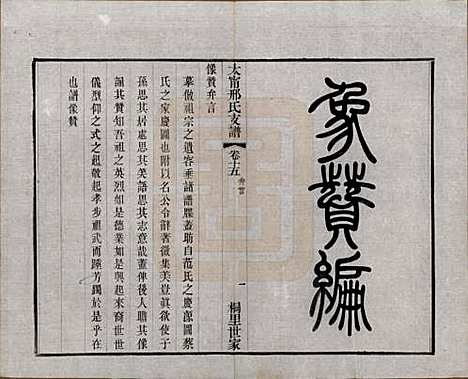 象贊編
太甯邢氏支譜
卷十五
弁言
一
桐里世家
像贊弁言
摹倣祖宗之遺容垂諸譜牒蓋助自范氏之慶源圖蔡
氏之家慶圖也附以名公令辭著徵集美豈眞欲後子
孫思其居處思其美語思其志意哉蓋俾後人瞻其
誦其贊知吾祖之英烈如是德業如是將起來裔世世
儀型仰之式之起敬起孝步祖武而踵芳躅於是乎在
也譜像贊